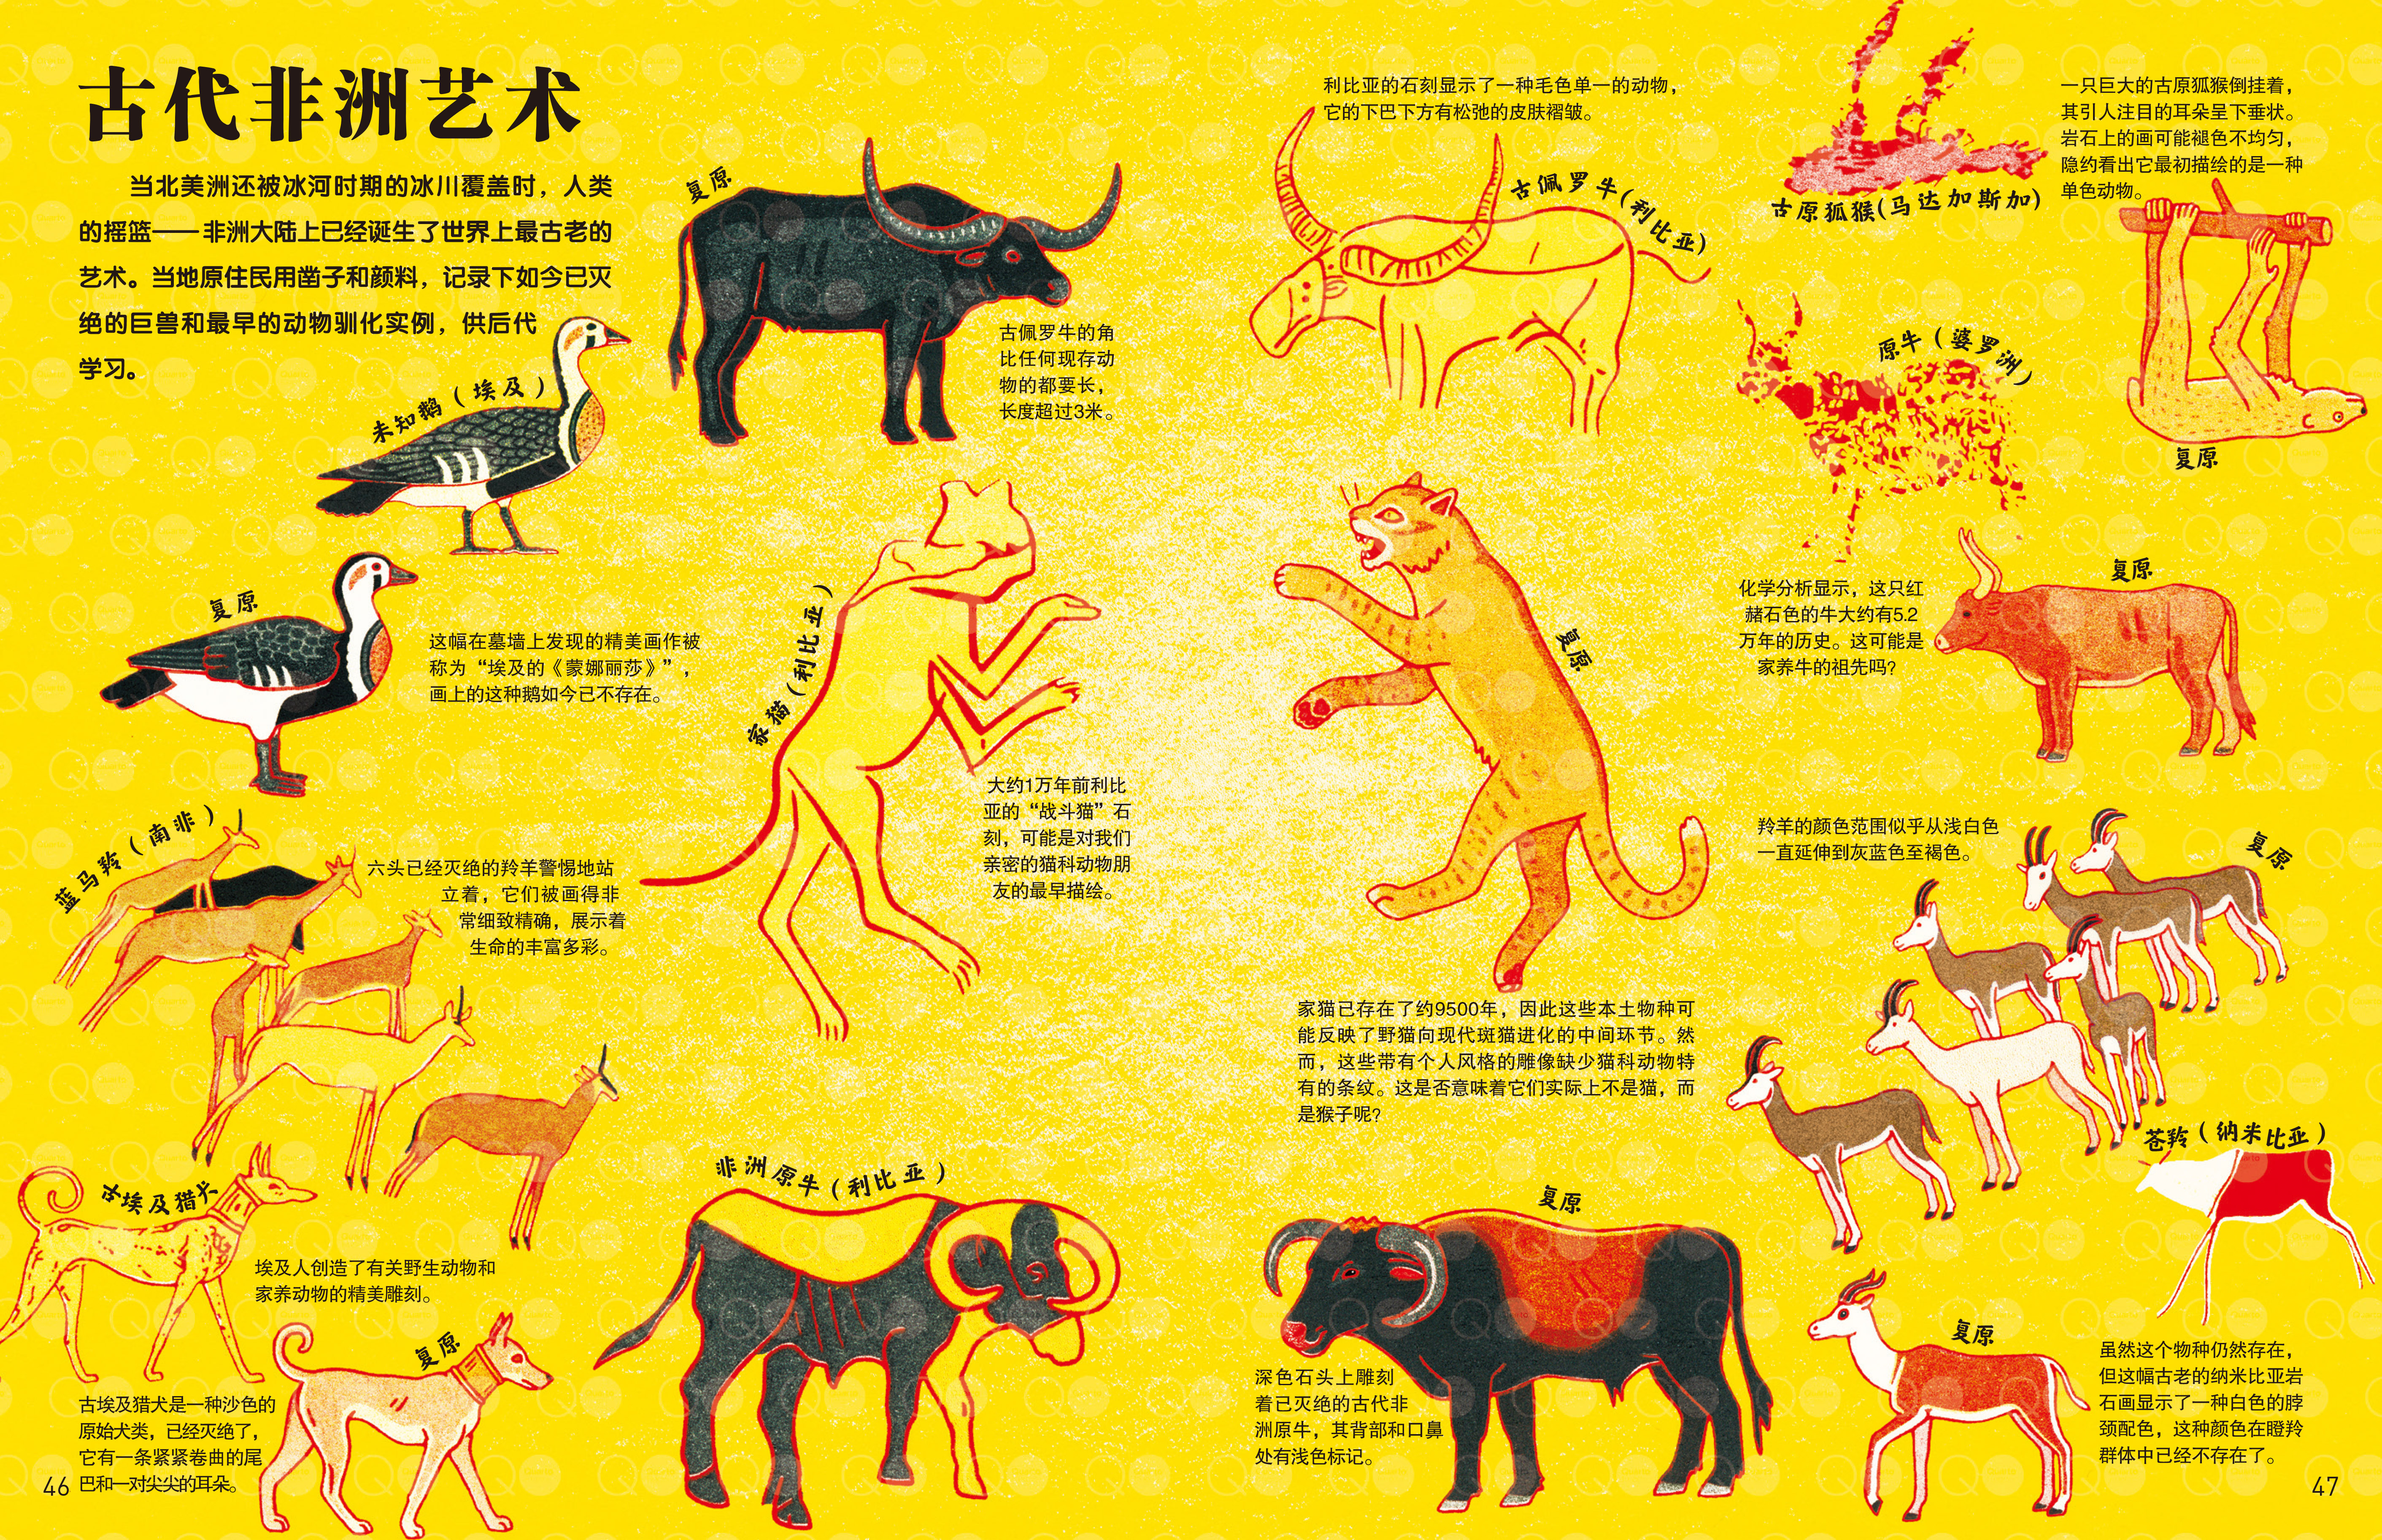 古代非洲艺术
当北美洲还被冰河时期的冰川覆盖时，人类
的摇篮——非洲大陆上已经诞生了世界上最古老的
艺术。当地原住民用凿子和颜料，记录下如今已灭
绝的巨兽和最早的动物驯化实例，供后代
学习。
未知鹅（埃及）
复原
这幅在墓墙上发现的精美画作被
称为“埃及的《蒙娜丽莎》”，
画上的这种鹅如今已不存在。
蓝马羚（南非）
六头已经灭绝的羚羊警惕地站
立着，它们被画得非
常细致精确，展示着
生命的丰富多彩。
古埃及猎犬
埃及人创造了有关野生动物和
家养动物的精美雕刻。
复原
古埃及猎犬是一种沙色的
原始犬类，已经灭绝了，
它有一条紧紧卷曲的尾
巴和一对尖尖的耳朵。
46
复原
古佩罗牛的角
比任何现存动
物的都要长，
长度超过3米。
家猫（利比亚）
大约1万年前利比
亚的“战斗猫”石
刻，可能是对我们
亲密的猫科动物朋
友的最早描绘。
非洲原牛（利比亚）
利比亚的石刻显示了一种毛色单一的动物，
它的下巴下方有松弛的皮肤褶皱。
古佩罗牛(利比亚)
复原
家猫已存在了约9500年，因此这些本土物种可
能反映了野猫向现代斑猫进化的中间环节。然
而，这些带有个人风格的雕像缺少猫科动物特
有的条纹。这是否意味着它们实际上不是猫，而
是猴子呢?
复原
深色石头上雕刻
着已灭绝的古代非
洲原牛，其背部和口鼻
处有浅色标记。
古原狐猴(马达加斯加)
一只巨大的古原狐猴倒挂着，
其引人注目的耳朵呈下垂状。
岩石上的画可能褪色不均匀，
隐约看出它最初描绘的是一种
单色动物。
复原
原牛（婆罗洲）
化学分析显示，这只红
赭石色的牛大约有5.2
万年的历史。这可能是
家养牛的祖先吗?
复原
羚羊的颜色范围似乎从浅白色
一直延伸到灰蓝色至褐色。
复原
苍羚（纳米比亚）
复原
虽然这个物种仍然存在，
但这幅古老的纳米比亚岩
石画显示了一种白色的脖
颈配色，这种颜色在瞪羚
群体中已经不存在了。
47